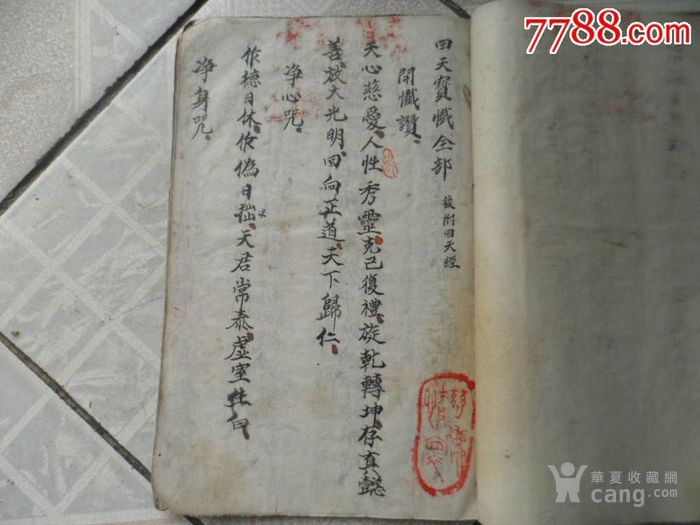 回天寶懺全部 後附回天經
開懺讚
天心慈愛人性秀靈克己復禮旋乾轉坤存真懿
善放大光明回向正道天下歸仁
净心咒
作德日休作偽日拙天君常泰虛室生白
净身咒
7788.com
華夏收藏網
cang.com